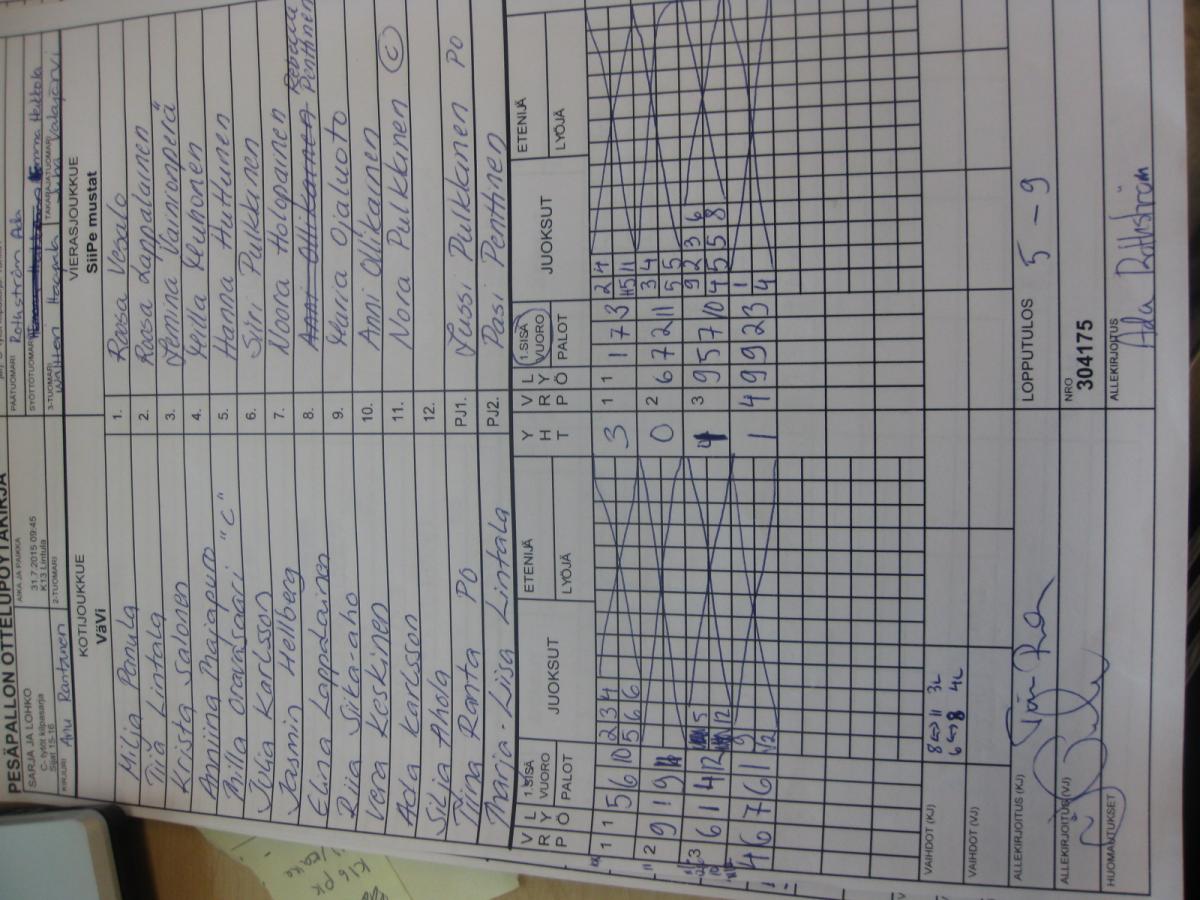 PESÄPALLON OTTELUPÖYTÄKIRJA
SARJA JA LOHKO
C- tytöt kilpasarja
Sijat 15-16
AIKA JA PAIKKA
31.7.2015 09:45
K13 Lintula
PÄÄTUOMARI Rothström Ada
SYÖTTÖTUOMARI
KIRJURI Anu Rantanen
2-TUOMARI
3-TUOMARI
TAKARAJATUOMARI
KOTIJOUKKUE
VäVi
VIERASJOUKKUE
SiiPe mustat
Milja Panula 1. Roosa Vesalo
Tiia Lintala 2. Roosa Lappalainen
Krista Salonen 3. Jemina Vainionperä
Amiina Majapuro 4. Milla Muhonen
Milla Osarasaari "C" 5. Hanna Huttunen
Julia Karlsson 6. Siiri Pulkkanen
Jasmin Hellberg 7. Noora Holopainen
Elisa Lappalainen 8. Anni Ollikainen Rebecca Penttinen
Riia Siika-aho 9. Maria Ojaluoto
Vera Keskinen 10. Anni Ollikainen
Ada Karlsson 11. Nora Pulkkanen C
Silja Ahola 12.
Tiina Ranta PO PJ1. Jussi Pulkkanen PO
Maria-Liisa Lintala PJ2. Pasi Penttinen
VRP LYÖ 1.SISÄ VUORO PALOT JUOKSUT ETENIJÄ LYÖJÄ YHT VRP LYÖ 1.SISÄ VUORO PALOT JUOKSUT ETENIJÄ LYÖJÄ
1 1 5 6 10 2 3 4 3 1 1 1 7 3 2 4
5 6 6
2 9 1 9 0 2 6 7 2 11 3 4
5 5
3 6 1 4 12 5 1 3 9 5 7 10 9 2 3 6
12 4 5 5 8
4 6 7 6 9 1 4 9 9 2 3 1
12 4
VAIHDOT (KJ) 8⇔11 3L
6⇔8 4L
VAIHDOT (VJ)
ALLEKIRJOITUS (KJ)
LOPPUTULOS 5 - 9
ALLEKIRJOITUS (VJ)
NRO
304175
HUOMAUTUKSET
ALLEKIRJOITUS
Ada Rothström
K16 PK